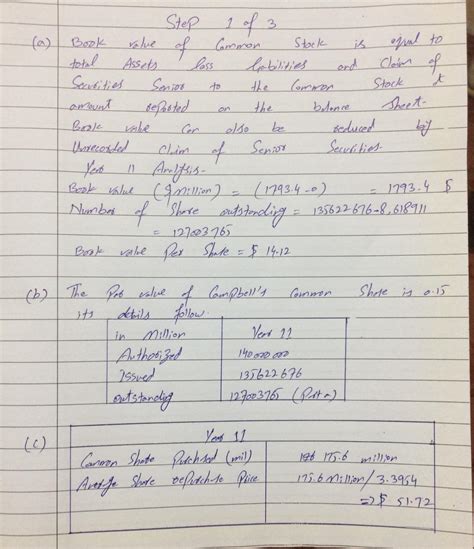 Step 1 of 3
(a) Book value of Common Stock is equal to
total Assets less liabilities and Claim of
Securities Senior to the Common Stock at
amount reported on the balance sheet.
Book value can also be reduced by
Unrecorded Claim of Senior Securities.
Year 11 Analysis.
Book value ($ Million) = (1793.4-0) = 1793.4 $
Number of Share outstanding = 135622676-8,618911
= 127003765
Book value Per Share = $ 14.12
(b) The Par value of Campbell's Common Share is 0.15
its details follow.
in Million Year 11
Authorized 140000000
Issued 135622676
outstanding 127003765 (Part a)
(c) Year 11
Common Share Purchased (mil) 175.6 million
Average Share rePurchase Price 175.6 Million/3.3954
=> $ 51.72